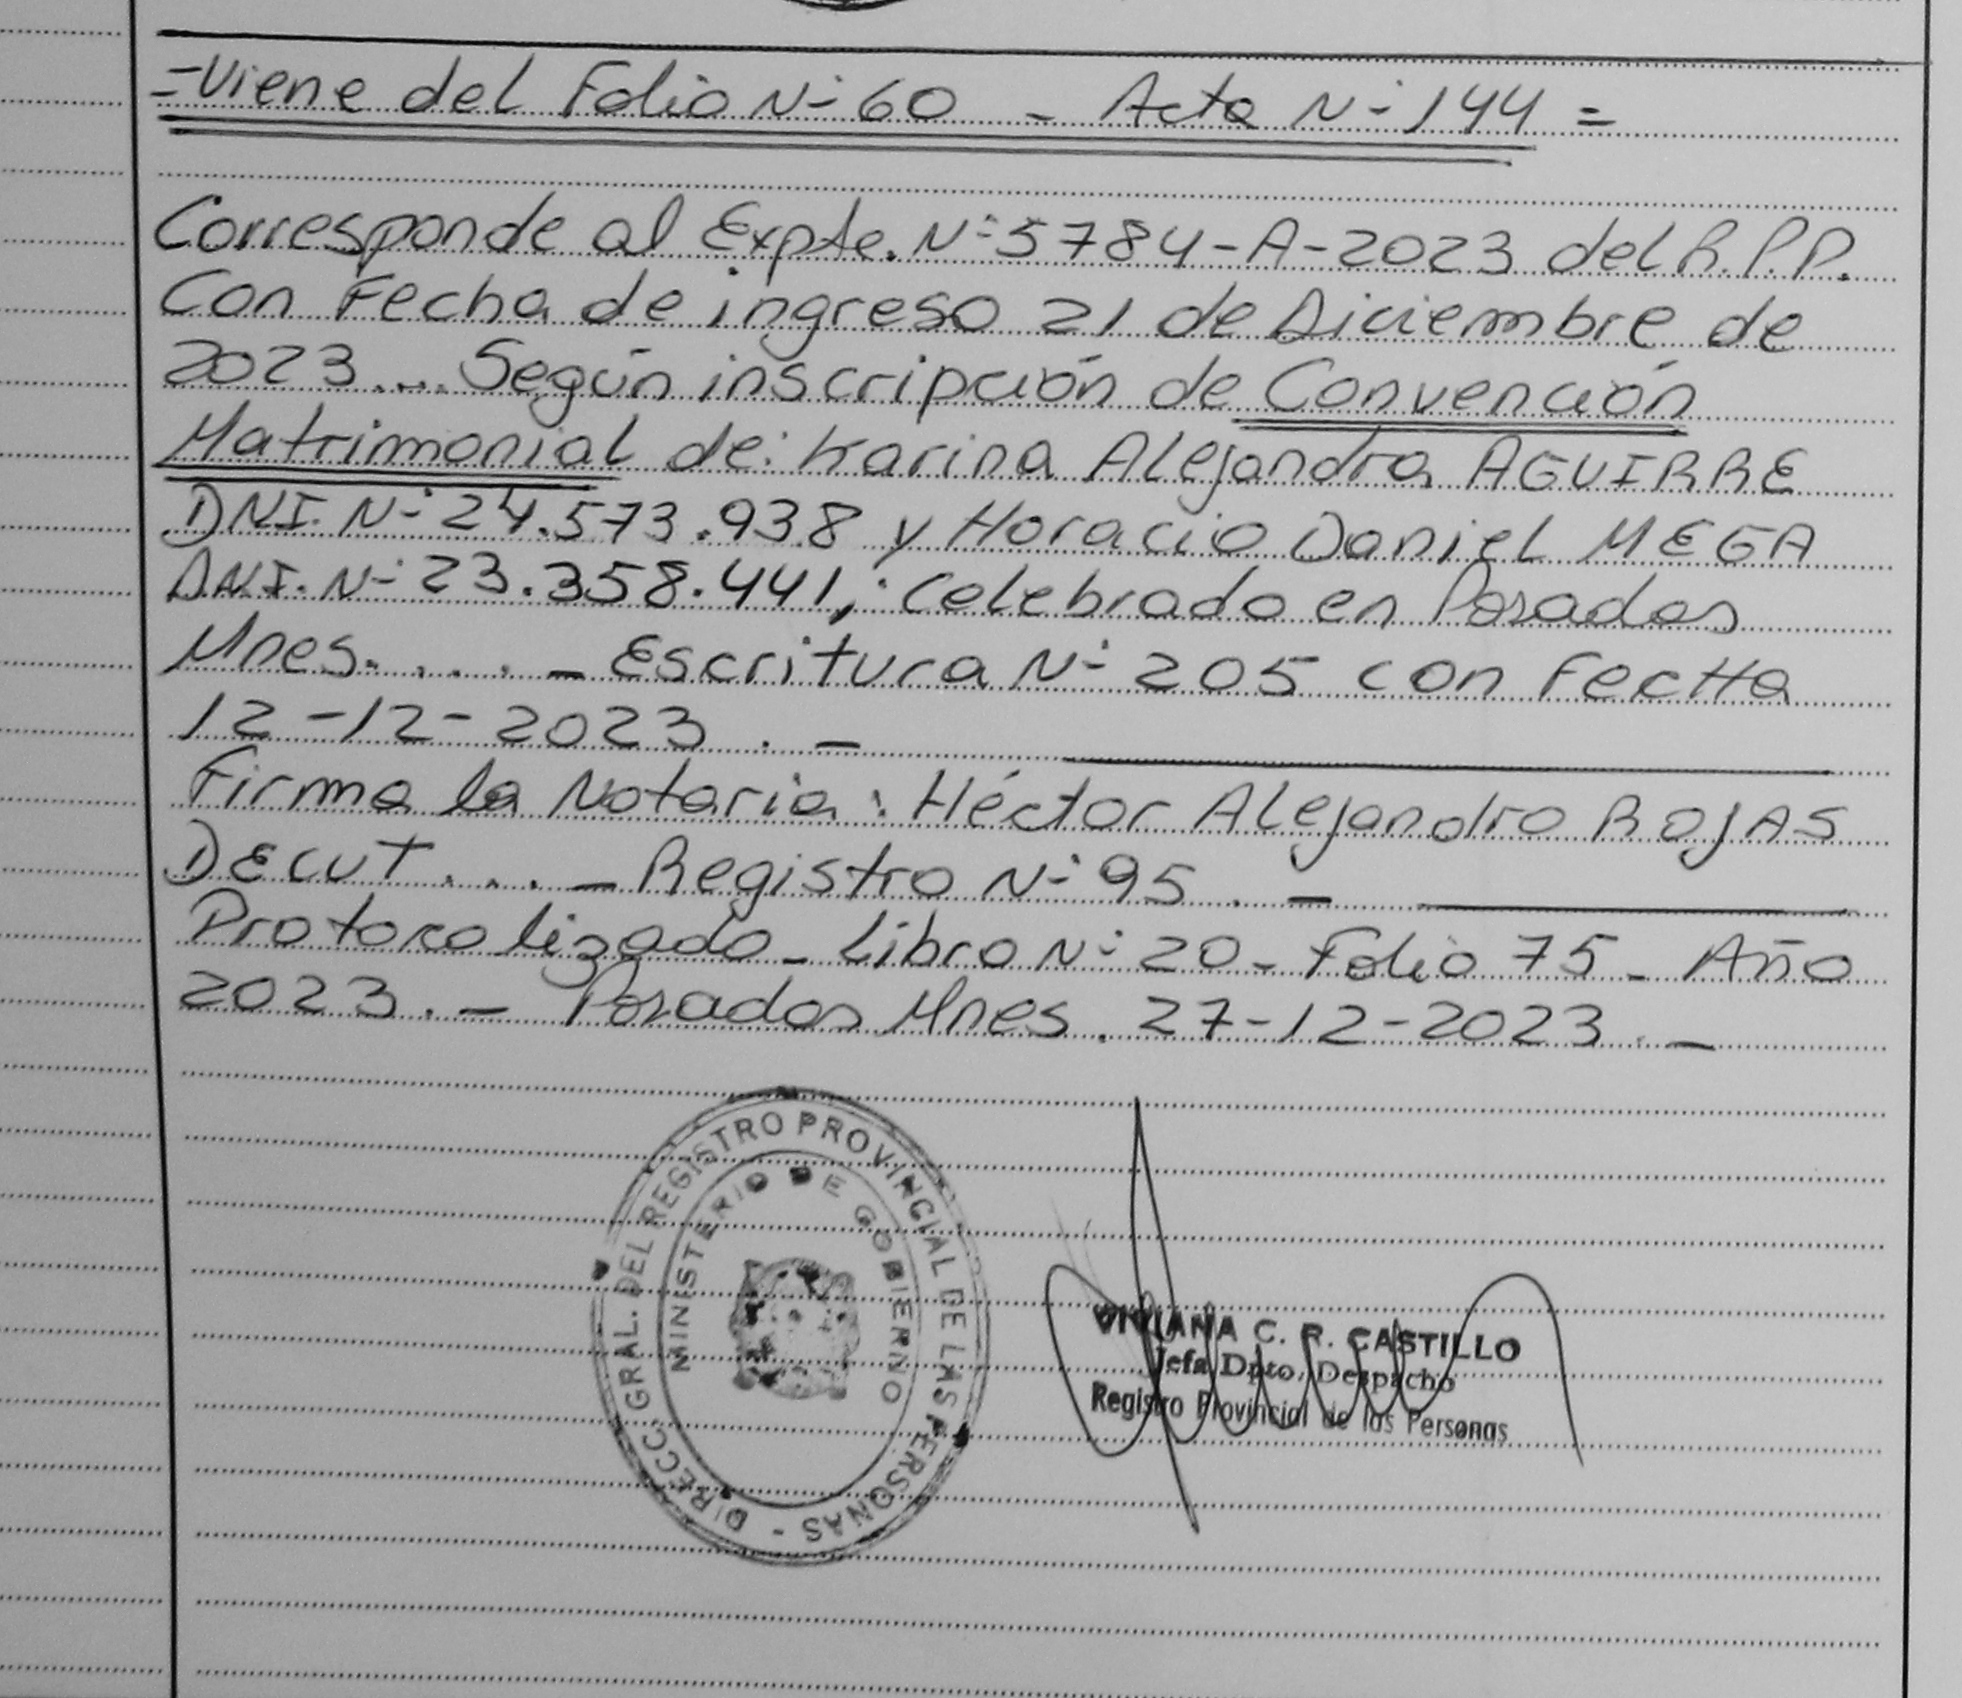 =Viene del Folio N- 60 - Acta N- 144 =
Corresponde al Expte. N- 5784-A-2023 del R.P.P.
Con Fecha de ingreso 21 de Diciembre de
2023.... Según inscripción de Convención
Matrimonial de: Karina Alejandra AGUIRRE
DNI. N- 24.573.938 y Horacio Daniel MEGA
D.N.I. N- 23.358.441,: Celebrado en Posadas
Mnes. . . . - Escritura N- 205 con FecHa
12-12-2023 . -
Firma la Notaria: Héctor Alejandro ROJAS
DECUT . . . - Registro N- 95 . -
Protocolizado - Libro N- 20 - Folio 75 - Año
2023 . - Posadas Mnes. 27-12-2023 . -
DIRECC. GRAL. DEL REGISTRO PROVINCIAL DE LAS PERSONAS -
MINISTERIO DE GOBIERNO
VIVIANA C. R. CASTILLO
Jefa Dpto. Despacho
Registro Provincial de las Personas